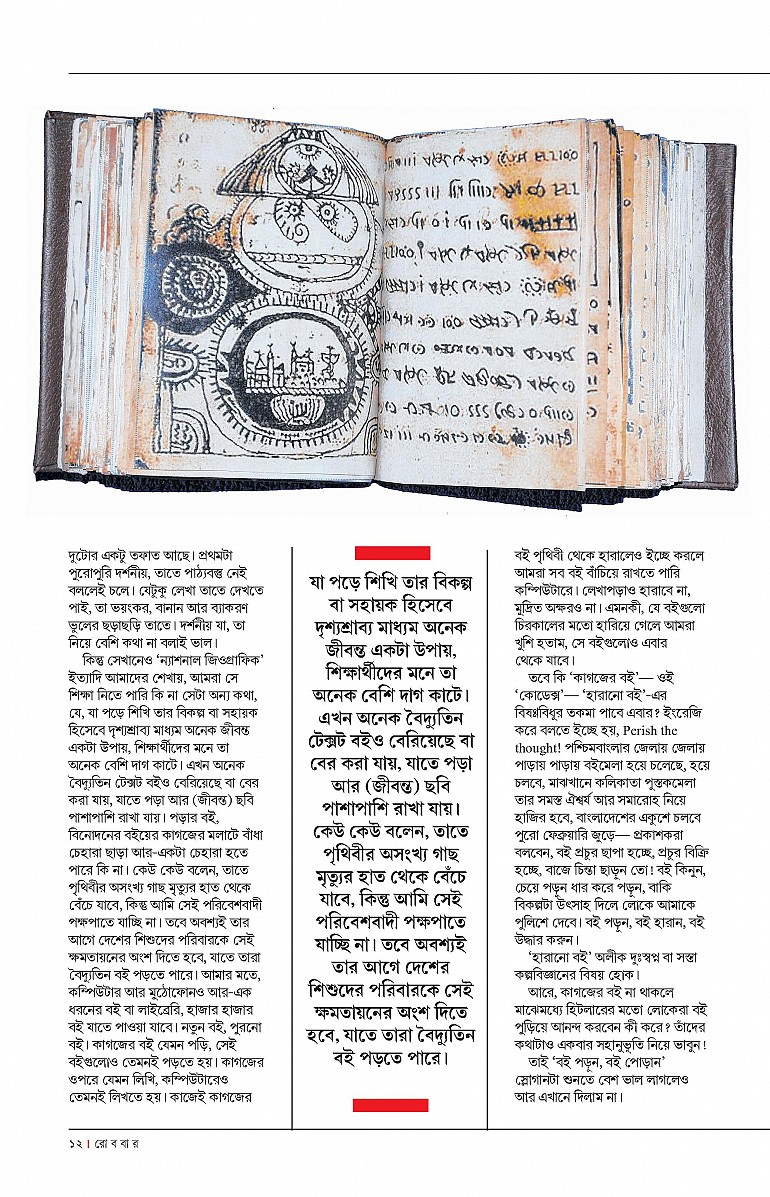 দুটোর একটু তফাত আছে। প্রথমটা
পুরোপুরি দর্শনীয়, তাতে পাঠ্যবস্তু নেই
বললেই চলে। যেটুকু লেখা তাতে দেখতে
পাই, তা ভয়ংকর, বানান আর ব্যাকরণ
ভুলের ছড়াছড়ি তাতে। দর্শনীয় যা, তা
নিয়ে বেশি কথা না বলাই ভাল।
কিন্তু সেখানেও ‘ন্যাশনাল জিওগ্রাফিক’
ইত্যাদি আমাদের শেখায়, আমরা সে
শিক্ষা নিতে পারি কি না সেটা অন্য কথা,
যে, যা পড়ে শিখি তার বিকল্প বা সহায়ক
হিসেবে দৃশ্যশ্রাব্য মাধ্যম অনেক জীবন্ত
একটা উপায়, শিক্ষার্থীদের মনে তা
অনেক বেশি দাগ কাটে। এখন অনেক
বৈদ্যুতিন টেক্সট বইও বেরিয়েছে বা বের
করা যায়, যাতে পড়া আর (জীবন্ত) ছবি
পাশাপাশি রাখা যায়। পড়ার বই,
বিনোদনের বইয়ের কাগজের মলাটে বাঁধা
চেহারা ছাড়া আর-একটা চেহারা হতে
পারে কি না। কেউ কেউ বলেন, তাতে
পৃথিবীর অসংখ্য গাছ মৃত্যুর হাত থেকে
বেঁচে যাবে, কিন্তু আমি সেই পরিবেশবাদী
পক্ষপাতে যাচ্ছি না। তবে অবশ্যই তার
আগে দেশের শিশুদের পরিবারকে সেই
ক্ষমতায়নের অংশ দিতে হবে, যাতে তারা
বৈদ্যুতিন বই পড়তে পারে। আমার মতে,
কম্পিউটার আর মুঠোফোনও আর-এক
ধরনের বই বা লাইব্রেরি, হাজার হাজার
বই যাতে পাওয়া যাবে। নতুন বই, পুরনো
বই। কাগজের বই যেমন পড়ি, সেই
বইগুলোও তেমনই পড়তে হয়। কাগজের
ওপরে যেমন লিখি, কম্পিউটারেও
তেমনই লিখতে হয়। কাজেই কাগজের
যা পড়ে শিখি তার বিকল্প
বা সহায়ক হিসেবে
দৃশ্যশ্রাব্য মাধ্যম অনেক
জীবন্ত একটা উপায়,
শিক্ষার্থীদের মনে তা
অনেক বেশি দাগ কাটে।
এখন অনেক বৈদ্যুতিন
টেক্সট বইও বেরিয়েছে বা
বের করা যায়, যাতে পড়া
আর (জীবন্ত) ছবি
পাশাপাশি রাখা যায়।
কেউ কেউ বলেন, তাতে
পৃথিবীর অসংখ্য গাছ
মৃত্যুর হাত থেকে বেঁচে
যাবে, কিন্তু আমি সেই
পরিবেশবাদী পক্ষপাতে
যাচ্ছি না। তবে অবশ্যই
তার আগে দেশের
শিশুদের পরিবারকে সেই
ক্ষমতায়নের অংশ দিতে
হবে, যাতে তারা বৈদ্যুতিন
বই পড়তে পারে।
বই পৃথিবী থেকে হারালেও ইচ্ছে করলে
আমরা সব বই বাঁচিয়ে রাখতে পারি
কম্পিউটারে। লেখাপড়াও হারাবে না,
মুদ্রিত অক্ষরও না। এমনকী, যে বইগুলো
চিরকালের মতো হারিয়ে গেলে আমরা
খুশি হতাম, সে বইগুলোও এবার
থেকে যাবে।
তবে কি ‘কাগজের বই’— ওই
‘কোডেক্স’— ‘হারানো বই’-এর
বিষঃবিধুর তকমা পাবে এবার? ইংরেজি
করে বলতে ইচ্ছে হয়, Perish the
thought! পশ্চিমবাংলার জেলায় জেলায়
পাড়ায় পাড়ায় বইমেলা হয়ে চলেছে, হয়ে
চলবে, মাঝখানে কলিকাতা পুস্তকমেলা
তার সমস্ত ঐশ্বর্য আর সমারোহ নিয়ে
হাজির হবে, বাংলাদেশের একুশে চলবে
পুরো ফেব্রুয়ারি জুড়ে— প্রকাশকরা
বলবেন, বই প্রচুর ছাপা হচ্ছে, প্রচুর বিক্রি
হচ্ছে, বাজে চিন্তা ছাড়ুন তো! বই কিনুন,
চেয়ে পড়ুন ধার করে পড়ুন, বাকি
বিকল্পটা উৎসাহ দিলে লোকে আমাকে
পুলিশে দেবে। বই পড়ুন, বই হারান, বই
উদ্ধার করুন।
‘হারানো বই’ অলীক দুঃস্বপ্ন বা সস্তা
কল্পবিজ্ঞানের বিষয় হোক।
আরে, কাগজের বই না থাকলে
মাঝেমধ্যে হিটলারের মতো লোকেরা বই
পুড়িয়ে আনন্দ করবেন কী করে? তাঁদের
কথাটাও একবার সহানুভূতি নিয়ে ভাবুন!
তাই ‘বই পড়ুন, বই পোড়ান’
স্লোগানটা শুনতে বেশ ভাল লাগলেও
আর এখানে দিলাম না।
১২ । রোববার